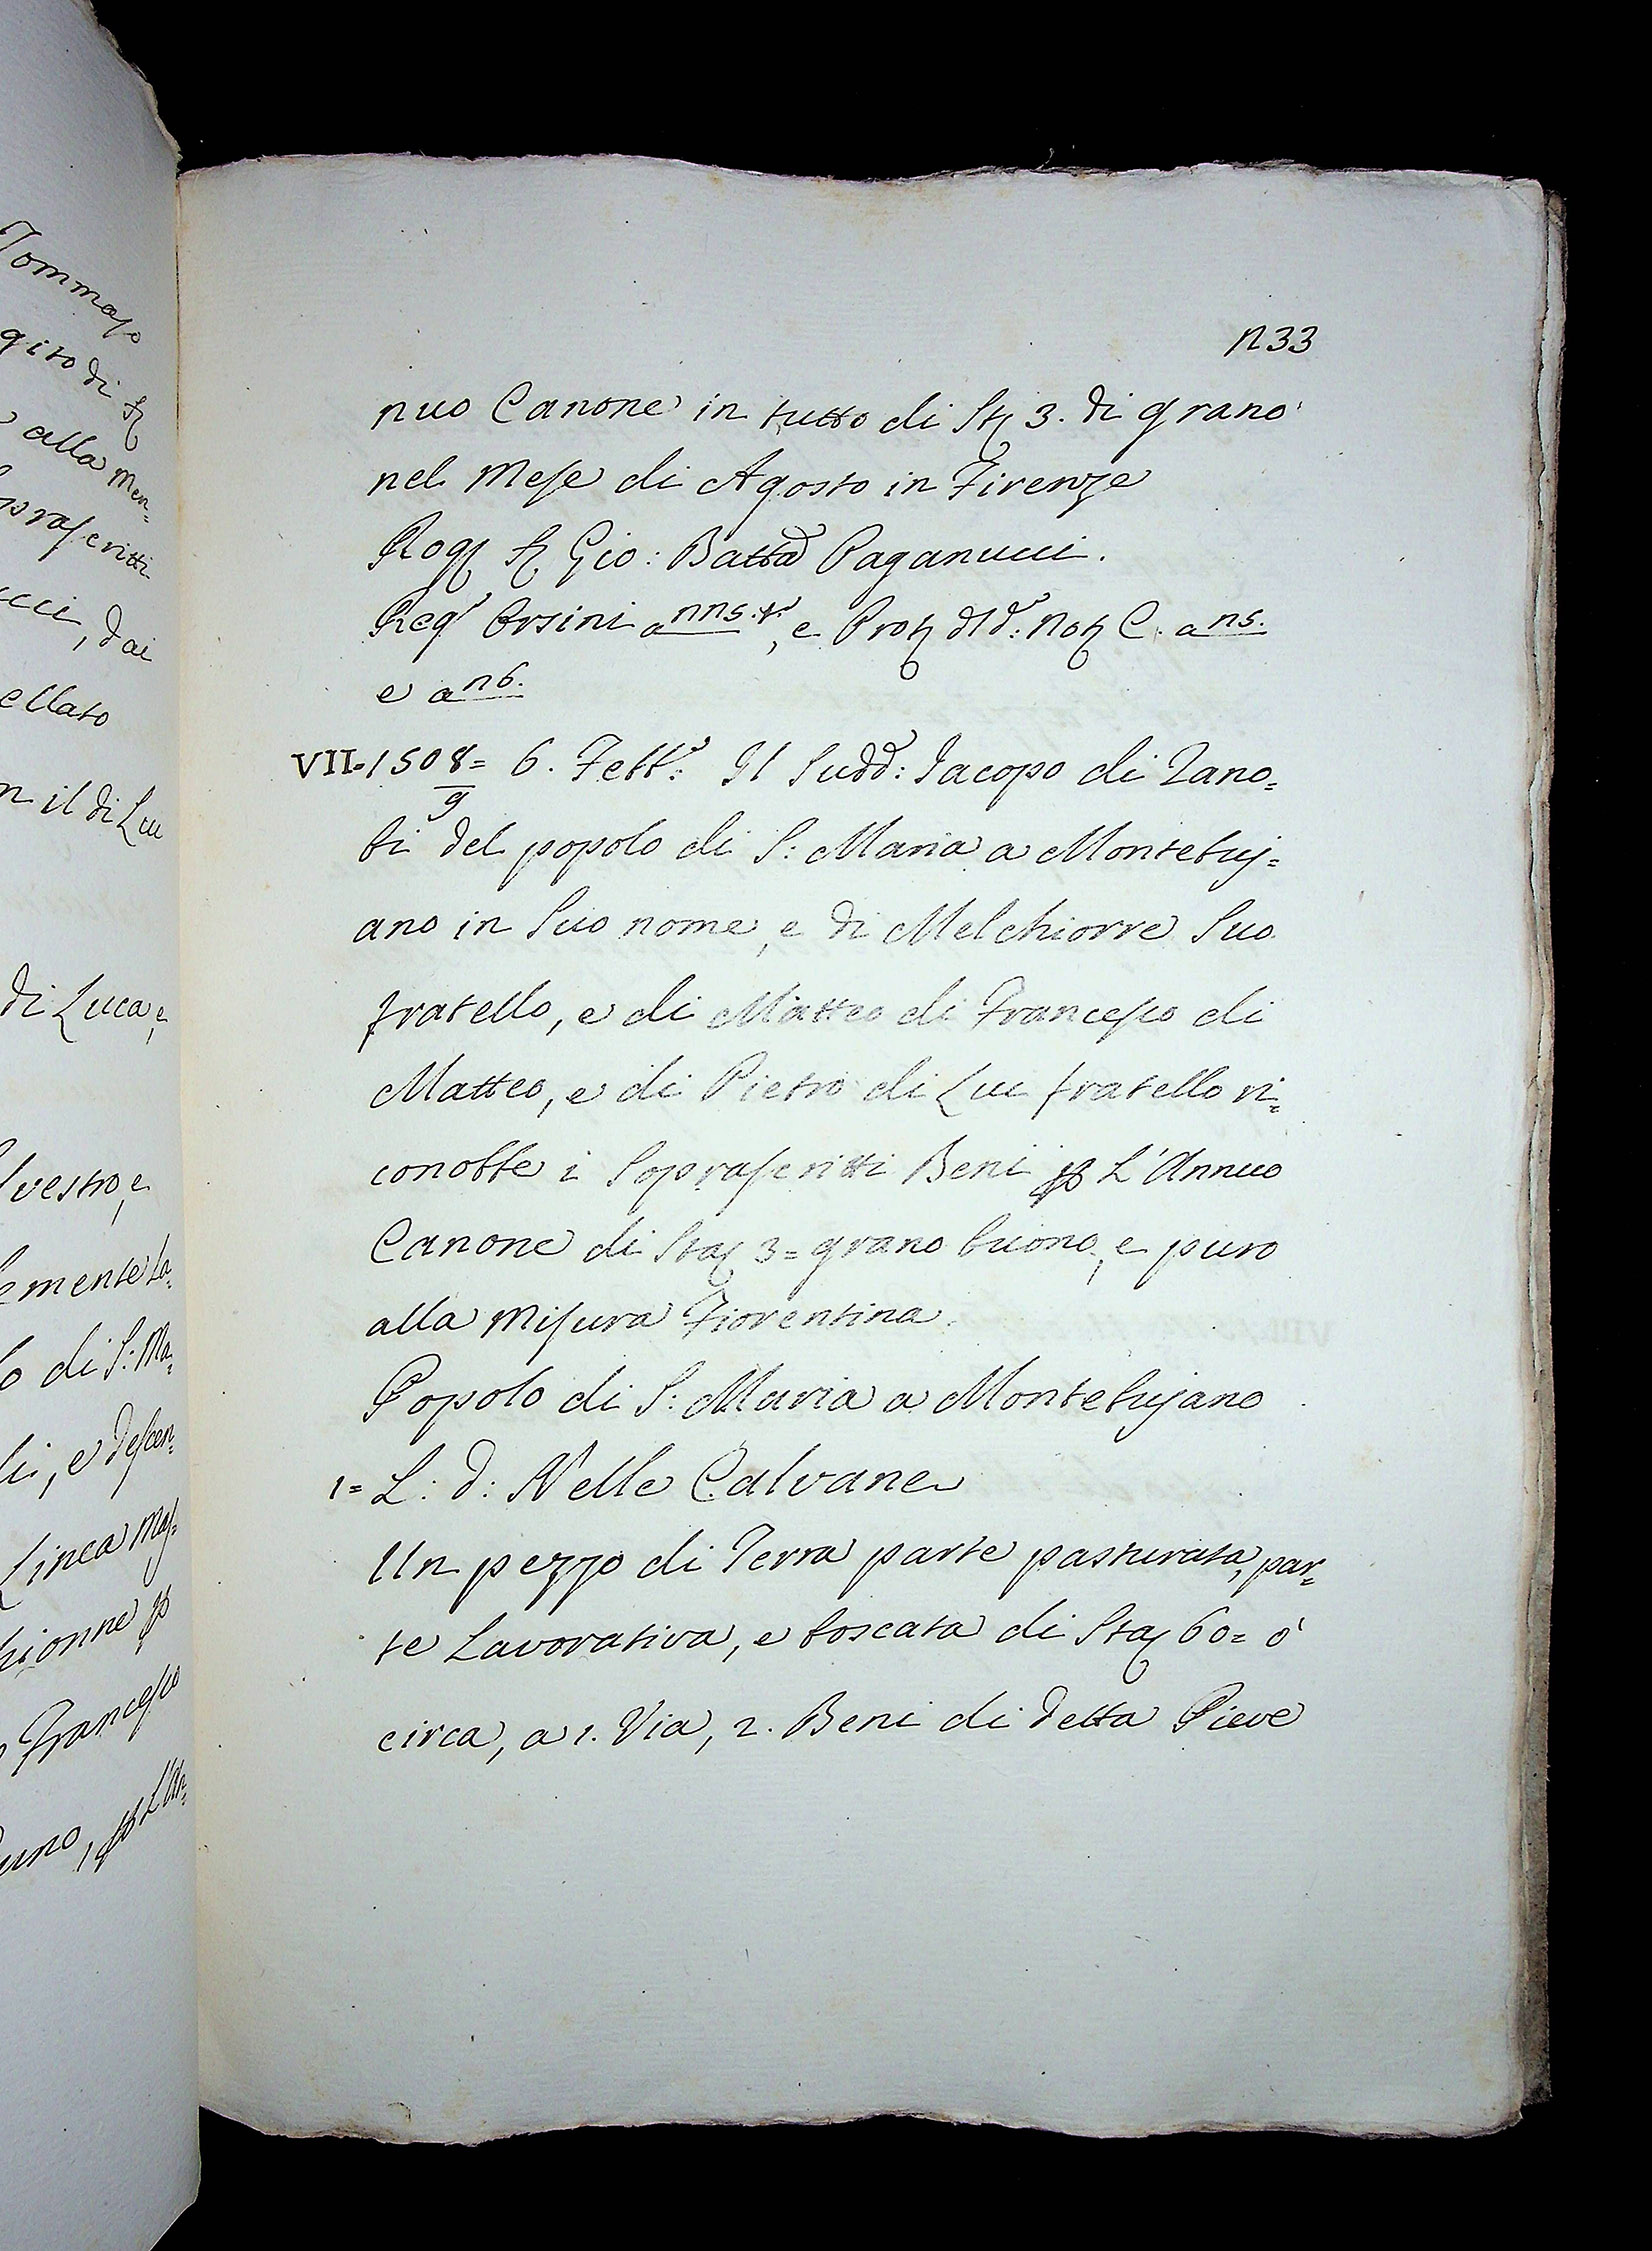 n33
nuo Canone in tutto di St: 3. di grano
nel Mese di Agosto in Firenze
Rog: S: Gio: Batta Paganucci.
Reg: Orsini a nns. , e Prot: d: d: Not: C. a ns.
e a n6.
VII=1508/9= 6. Febb: Il Sudd: Jacopo di Zano=
bi del popolo di S: Maria a Montebuj=
ano in Suo nome, e di Melchiorre Suo
fratello, e di Matteo di Francesco di
Matteo, e di Pietro di Luc fratello ri=
conobbe i Soprascritti Beni p L'Annuo
Canone di Sta: 3= grano buono, e puro
alla Misura Fiorentina.
Popolo di S: Maria a Montebujano
1= L: d: Nelle Calvane
Un pezzo di Terra parte pasturata, par=
te Lavorativa, e boscata di Sta: 60= o'
circa, a 1. Via, 2. Beni di detta Pieve
Tommaso
di S:
alla Men=
prascritti
cci, dai
ellato
n il di Luc
di Luca, e
lvestro, e
emente La=
o di S: Ma=
li, e descen=
Linea Mas=
hionne p
Francesco
uno, p L'An=